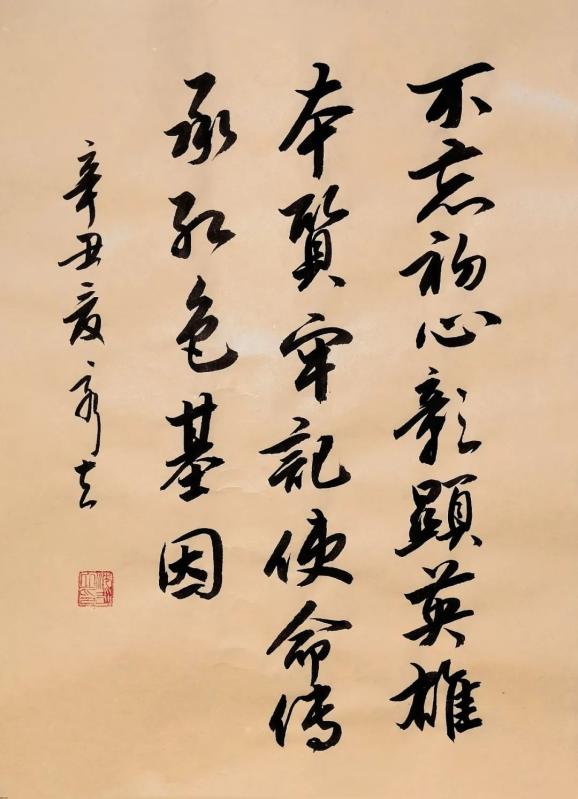 不忘初心彰顯英雄
本質牢記使命傳
承红色基因
辛丑夏